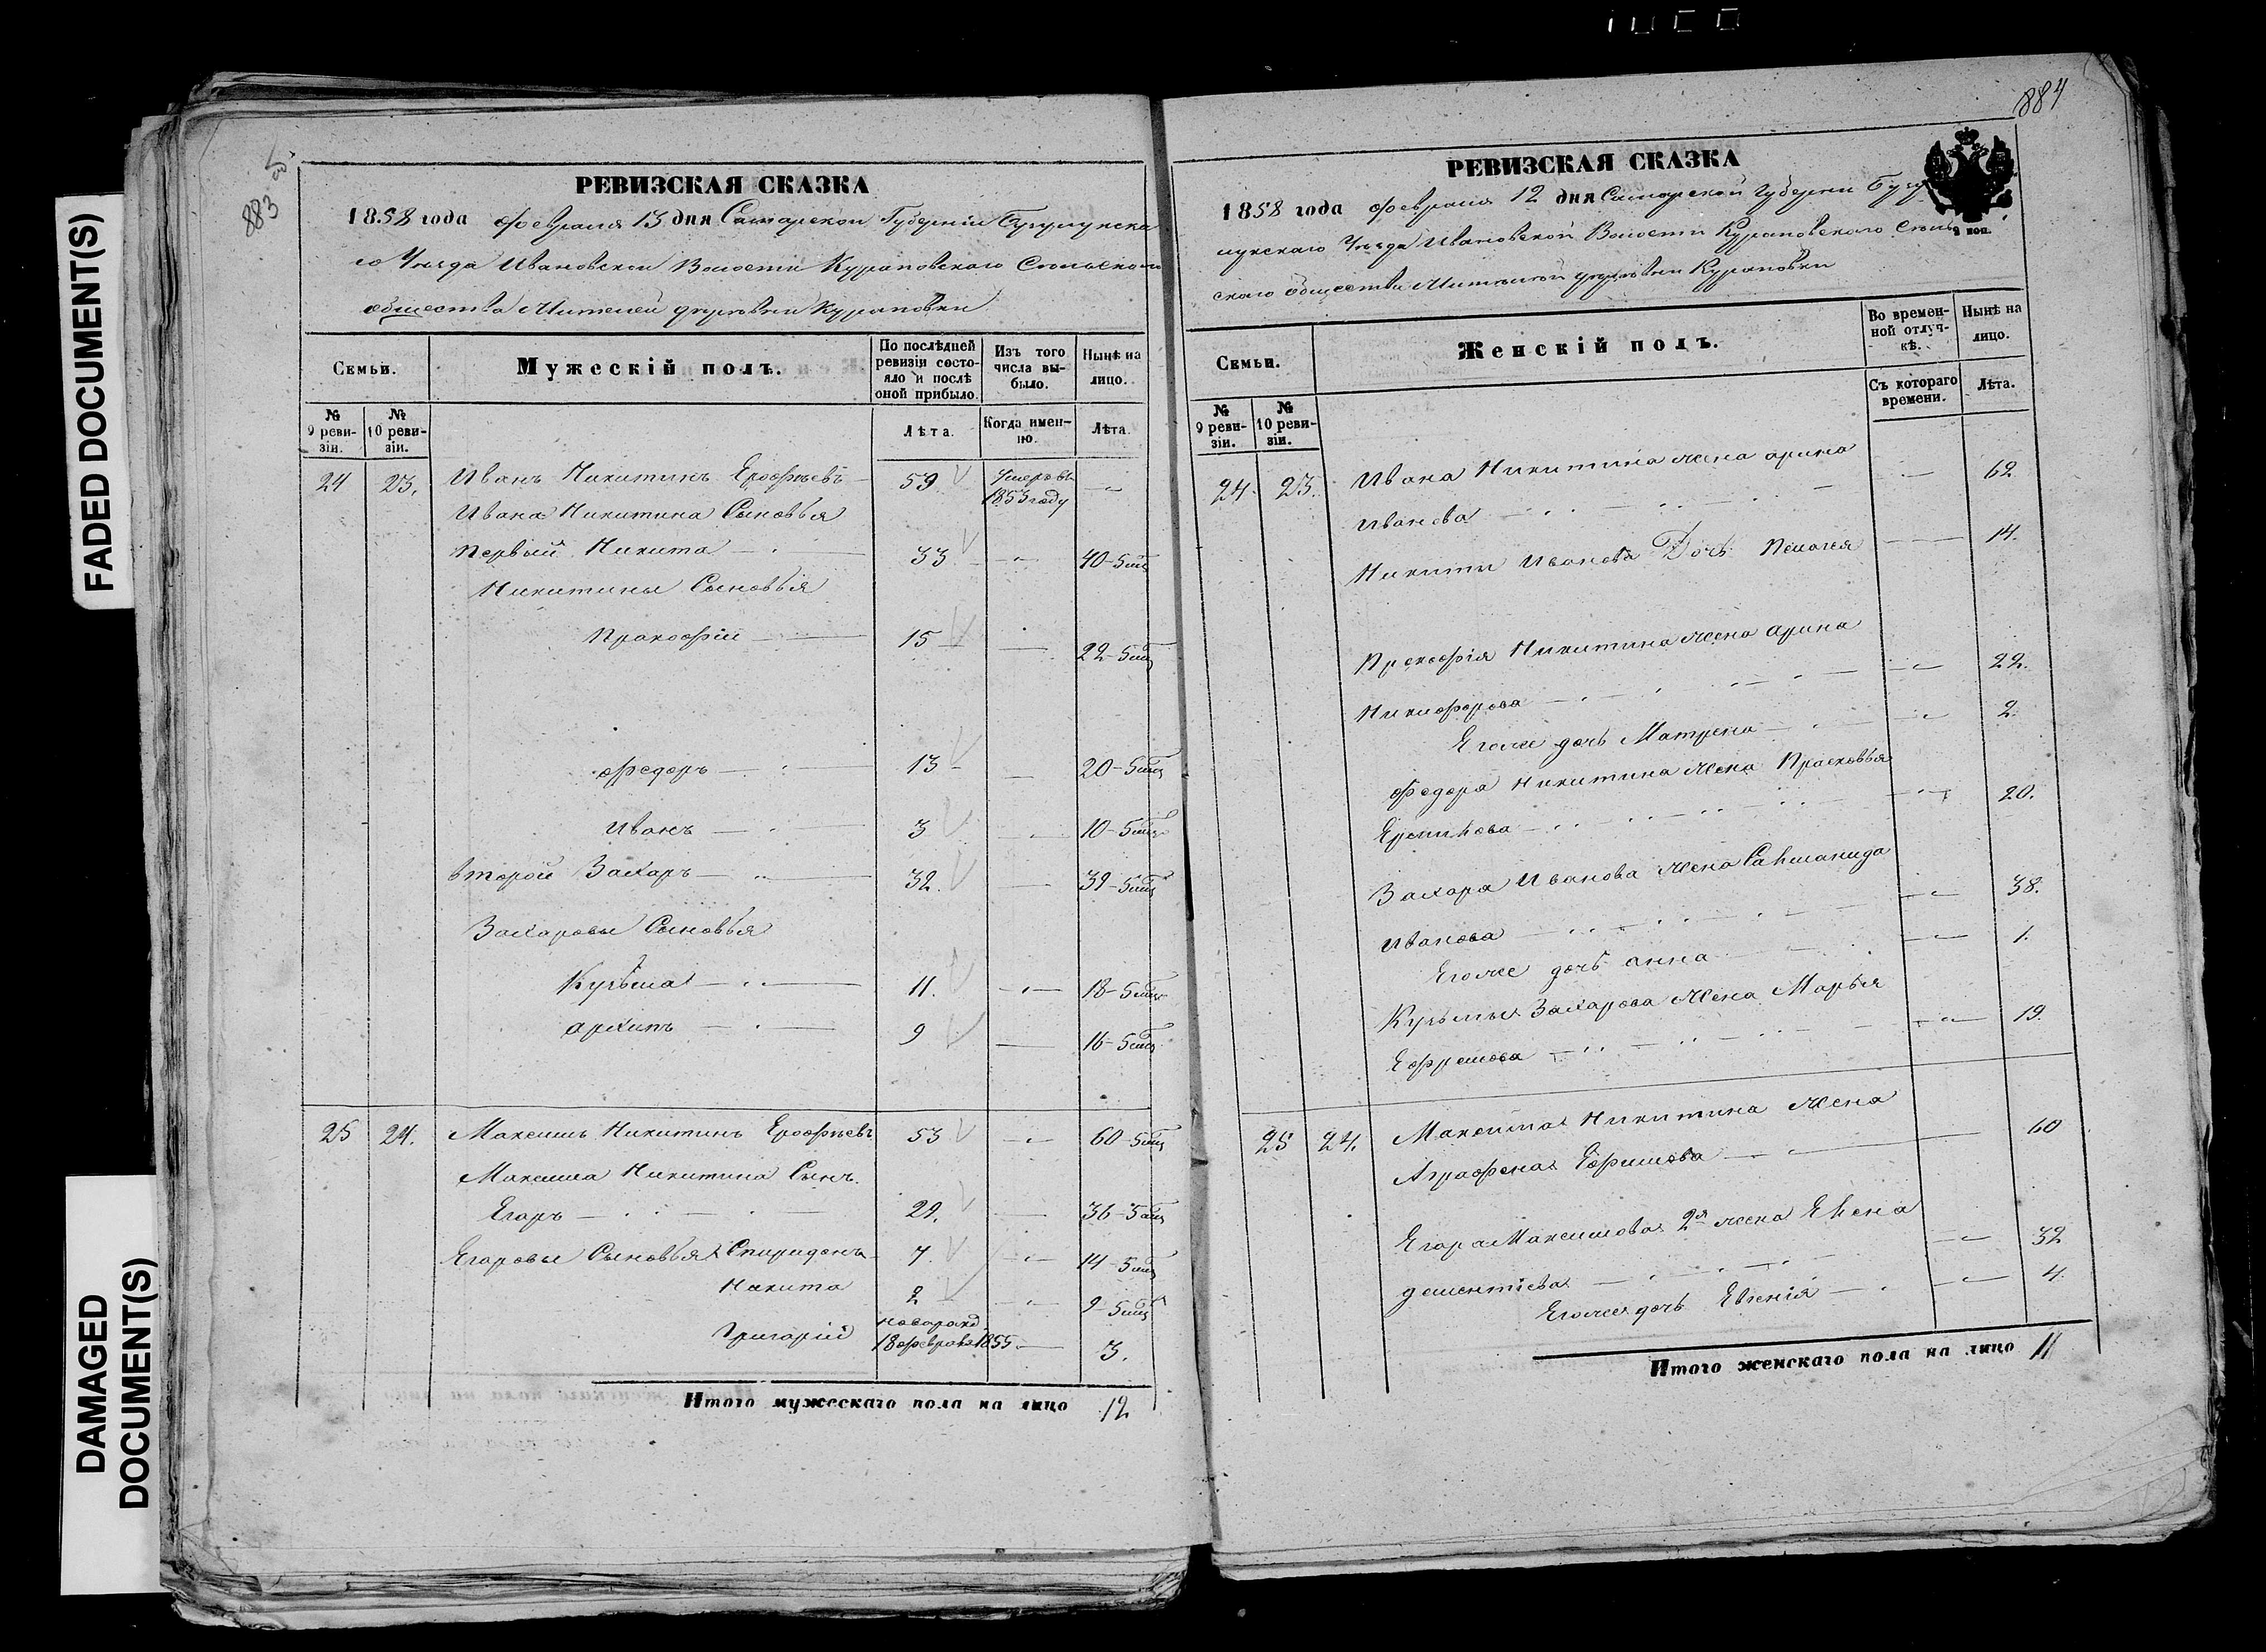 FADED DOCUMENT(S)
DAMAGED
DOCUMENT(S)
883 об.
РЕВИЗСКАЯ СКАЗКА
1858 года февраля 13 дня Самарской Губерніи Бугурлукска
го Уѣзда Ивановской Волости Кураповскаго Сельскаго
общества Жителей деревни Кураповки
Семьи.
Мужескій полъ.
По послѣдней ревизіи состояло и послѣ оной прибыло.
Изъ того числа выбыло.
Нынѣ на лицо.
№ 9 ревизіи.
№ 10 ревизіи.
Лѣта.
Когда именно.
Лѣта.
24 23. Иванъ Никитинъ Ерофѣевъ 59 Умеръ въ 1853 году
Ивана Никитина Сыновья
Первый Никита 33 40-5
Никитины Сыновья
Пракофій 15 22-5
Федоръ 13 20-5
Иванъ 3 10-5
второй Захаръ 32. 39-5
Захаровы Сыновья
Кузьма 11. 18-5
архипъ 9 16-5
25 24. Максимъ Никитинъ Ерофѣевъ 53 60-5
Максима Никитина Сынъ
Егоръ 29. 36-5
Егоровы Сыновья Спиридонъ 7. 14-5
Никита 2 9-5
Григорій новорожд 18 февраля 1855. 3.
Итого мужескаго пола на лицо 12
884
РЕВИЗСКАЯ СКАЗКА
1858 года февраля 12 дня Самарской Губерніи Бугу
Уѣзда Ивановской Волости Кураповскаго Сель
скаго общества Жителей деревни Кураповки
Семьи.
Женскій полъ.
Во временной отлучкѣ.
Нынѣ на лицо.
№ 9 ревизіи.
№ 10 ревизіи.
Съ котораго времени.
Лѣта.
24. 23. Ивана Никитина жена арина
Иванова 62
Никиты Иванова Дочь Пелагея 14.
Пракофія Никитина жена Арина
Никифорова 22.
Егоже дочь Матрена 2.
Федора Никитина жена Прасковья
20.
Захара Иванова жена
Иванова 38.
Егоже дочь анна 1.
Кузьмы Захарова жена Марья
Ефремова 19.
25 24. Максима Никитина жена
Аграфена Ефимова 60
Егора Максимова 2я жена Елена
дементіева 32
Егоже дочь Евгенія 4.
Итого женскаго пола на лицо 11